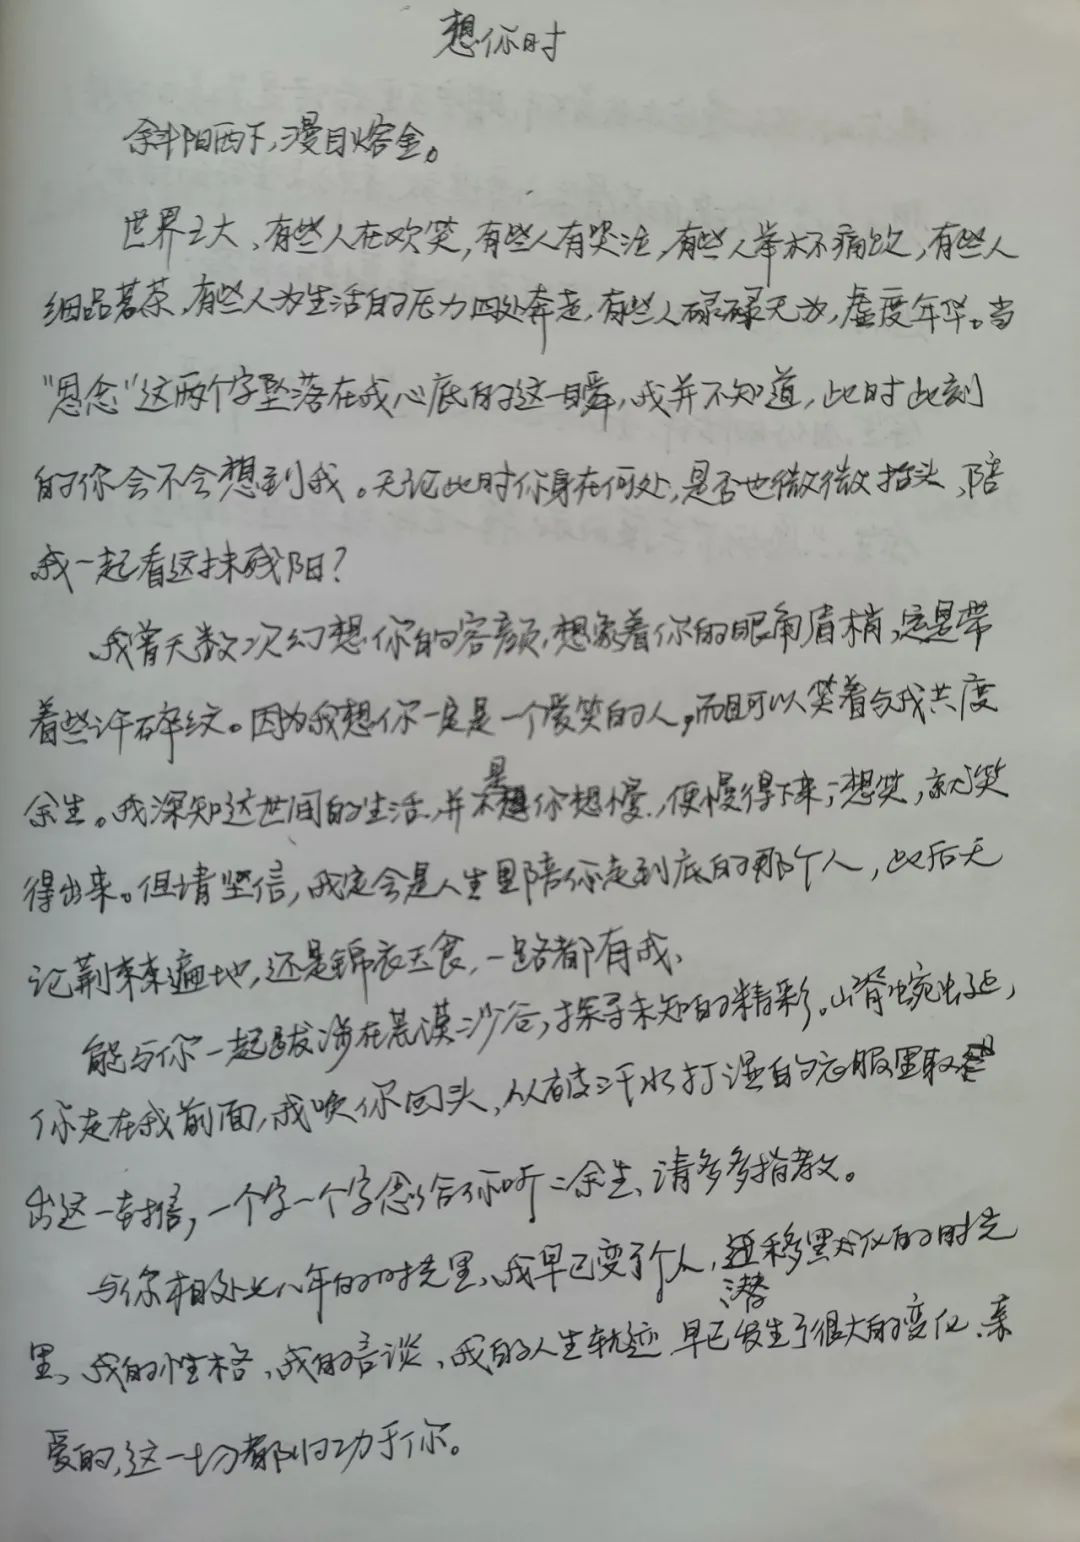 想你时
斜阳西下，漫目熔金。
世界之大，有些人在欢笑，有些人有哭泣，有些人举杯痛饮，有些人
细品茗茶，有些人为生活的压力四处奔走，有些人碌碌无为，虚度年华。当
“思念”这两个字坠落在我心底的这一瞬，我并不知道，此时此刻
的你会不会想到我。无论此时你身在何处，是否也微微抬头，陪
我一起看这抹残阳？
我曾无数次幻想你的容颜，想象着你的眼角眉梢，定是带
着些许碎纹。因为我想你一定是一个爱笑的人，而且可以笑着与我共度
余生。我深知这世间的生活，并不是你想慢，便慢得下来；想笑，就笑
得出来。但请坚信，我定会是人生里陪你走到底的那个人，此后无
论荆棘遍地，还是锦衣玉食，一路都有我、
能与你一起跋涉在荒漠沙谷，探寻未知的精彩。山脊蜿蜒，
你走在我前面，我唤你回头，从被汗水打湿的衣服里取
出这一封信，一个字一个字念给你听：余生、请多多指教。
与你相处七八年的时光里、我早已变了个人，潜移默化的时光
里、我的性格、我的言谈、我的人生轨迹 早已发生了很大的变化、亲
爱的，这一切都归功于你。